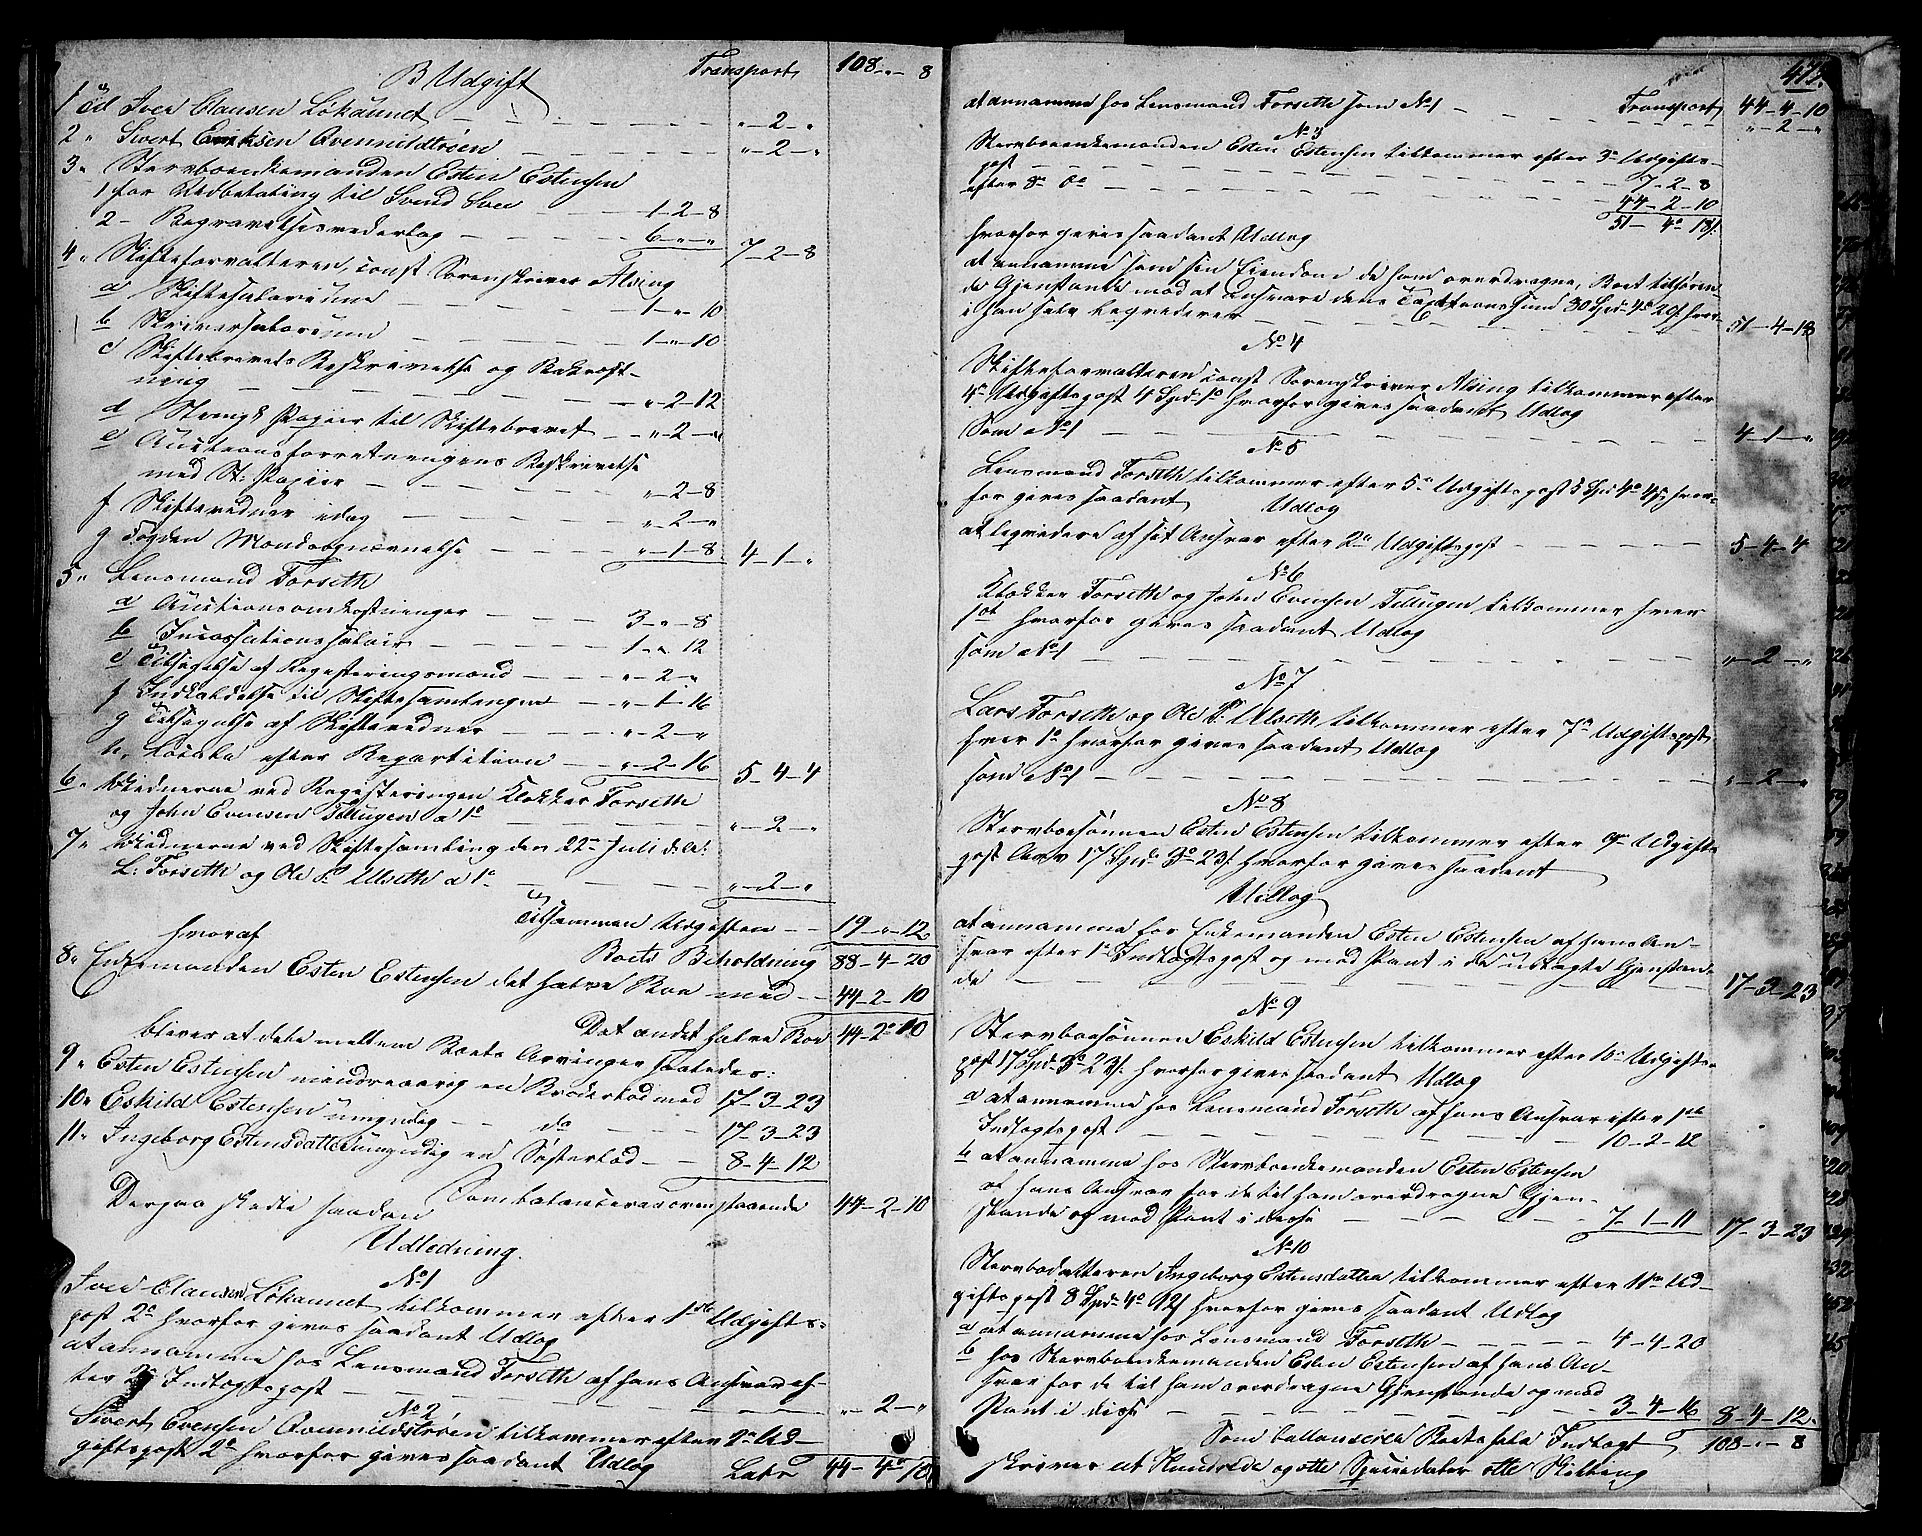 B Udgift Transport 108 - " - 8
1 Til Iver Clausen Løkaunet " - 2 - "
2 " Sivert Eriksen Avenmildtrøen " - 2 - "
3 " Stervboenkemanden Esten Estensen
1 for Udbetaling til Svend Svee 1 - 2 - 8
2 - Begravelsesvederlag 6 - " - " 7 - 2 - 8
4 " Skifteforvalteren, const Sorenskriver Alsing
a Skiftesalarium 1 - " - 10
b Skriversalarium 1 - " - 10
c Skiftebrevets Beskrivelse og Bekræft-
ning " - 2 - 12
d Stempl: Papiir til Skiftebrevet " - 2 - "
e Auctionsforretningens Beskrivelse
med St: Papiir " - 2 - 8
f Skiftevidner idag " - 2 - "
g Fogden Mandsopnævnelse " - 1 - 8 4 - 1 - "
5 " Lensmand Forseth
a Auctionsomkostninger 3 - " - 8
b Incassations salair 1 - " - 12
c Tilsigelse af Registeringsmænd " - 2 - "
f Indkaldelse til Skiftesamlingen " - 1 - 16
g Tilsigelse af Skiftevidner " - 2 - "
h, efter Repartition " - 2 - 16 5 - 4 - 4
6 " Vidnerne ved Registeringen Klokker Forseth
og John Evensen Tellugen a 1 " - 2 - "
7 " Vidnerne ved Skiftesamling den 22 Juli d: A:
L: Forseth og Ole P. Uloseth a 1 " - 2 - "
Tilsammen Udgiften 19 - " - 12
hvoraf Boets Beholdning 88 - 4 - 20
8 " Enkemanden Esten Estensen det halve Boe med 44 - 2 - 10
Det andet halve Boe 44 - 2 - 10
bliver at dele mellem Boets Arvinger saaledes:
9 " Esten Estensen mindreaarig en Broderlod med 17 - 3 - 23
10 " Eskild Estensen umyndig do 17 - 3 - 23
11 " Ingeborg Estensdatter umyndig en Søsterlod 8 - 4 - 12
Som balancerer ovenstaaende 44 - 2 - 10
Derpaa skede saadan
Udledning.
No 1
Iver Clausen Løkaunet tilkommer efter 1ste Udgifts-
post 2 hvorfor gives saadant Udlog
at annamme hos Lensmand Forseth af hans Ansvar ef-
ter 2 Indtægtspost " - 2 - "
No 2
Sivert Evensen Avenmildstrøen tilkommer efter 2 Ud-
giftspost 2 hvorfor gives saadant Udlog Latr 44 - 4 - 10
475.
Transport 44 - 4 - 10
at annamme hos Lensmand Forseth som No 1 " - 2 - "
No 3
Stervboenkemanden Esten Estensen tilkommer efter 3 Udgifts-
post 7 - 2 - 8
efter 8 do 44 - 2 - 10
51 - 4 - 18
hvorfor gives saadant Udlog
at annamme som sin Eiendom de ham overdragne, Boet tilhøren-
de Gjenstande mod at ansvare dens Taxt 30 Spd 4 20 hvor-
i han selv liqviderer 51 - 4 - 18
No 4
Skifteforvalteren const Sorenskriver Alsing tilkommer efter
4 Udgiftspost 4 Spd 1 hvorfor gives saadant Udlog
Som No 1 4 - 1 - "
No 5
Lensmand Forseth tilkommer efter 5 Udgiftspost 5 Spd 4 4 hvor-
for gives saadant Udlog
at liqvidere af sit Ansvar efter 2 Udgiftspost 5 - 4 - 4
No 6
Klokker Forseth og John Evensen Tellugen tilkommer hver
1 hvorfor gives saadant Udlog
som No 1 " - 2 - "
No 7
Lars Forseth og Ole P. Uloseth tilkommer efter 7 Udgiftspost
hver 1 hvorfor gives saadant Udlog
som No 1 " - 2 - "
No 8
Stervboesønnen Esten Estensen tilkommer efter 9 Udgifts-
post Arv 17 Spd 3 23 hvorfor gives saadant
Udlog
at annamme hos Enkemanden Esten Estensen af hans An-
svar efter 1 Indtægtspost og mod Pant i de udlagte Gjenstan-
de 17 - 3 - 23
No 9
Stervboesønnen Eskild Estensen tilkommer efter 10 Udgifts-
post 17 Spd 3 23 hvorfor gives saadant Udlog
a at annamme hos Lensmand Forseth af hans Ansvar efter 1ste
Indtægtspost 10 - 2 - 12
b at annamme hos Stervboenkemanden Esten Estensen
af hans Ansvar for de til ham overdragne Gjen-
stande og mod Pant i disse 7 - 1 - 11 17 - 3 - 23
No 10
Stervbodatteren Ingeborg Estensdatter tilkommer efter 11 Ud-
giftspost 8 Spd 4 12 hvorfor gives saadant Udlog
a at annamme hos Lensmand Forseth 4 - 4 - 20
b hos Stervboenkemanden Esten Estensen af hans An-
svar for de til ham overdragne Gjenstande og mod
Pant i disse 3 - 4 - 16 8 - 4 - 12.
Som ballancerer Boets hele Indtægt 108 - " - 8
skriver et Hundrede og otte Speciedaler otte Skilling